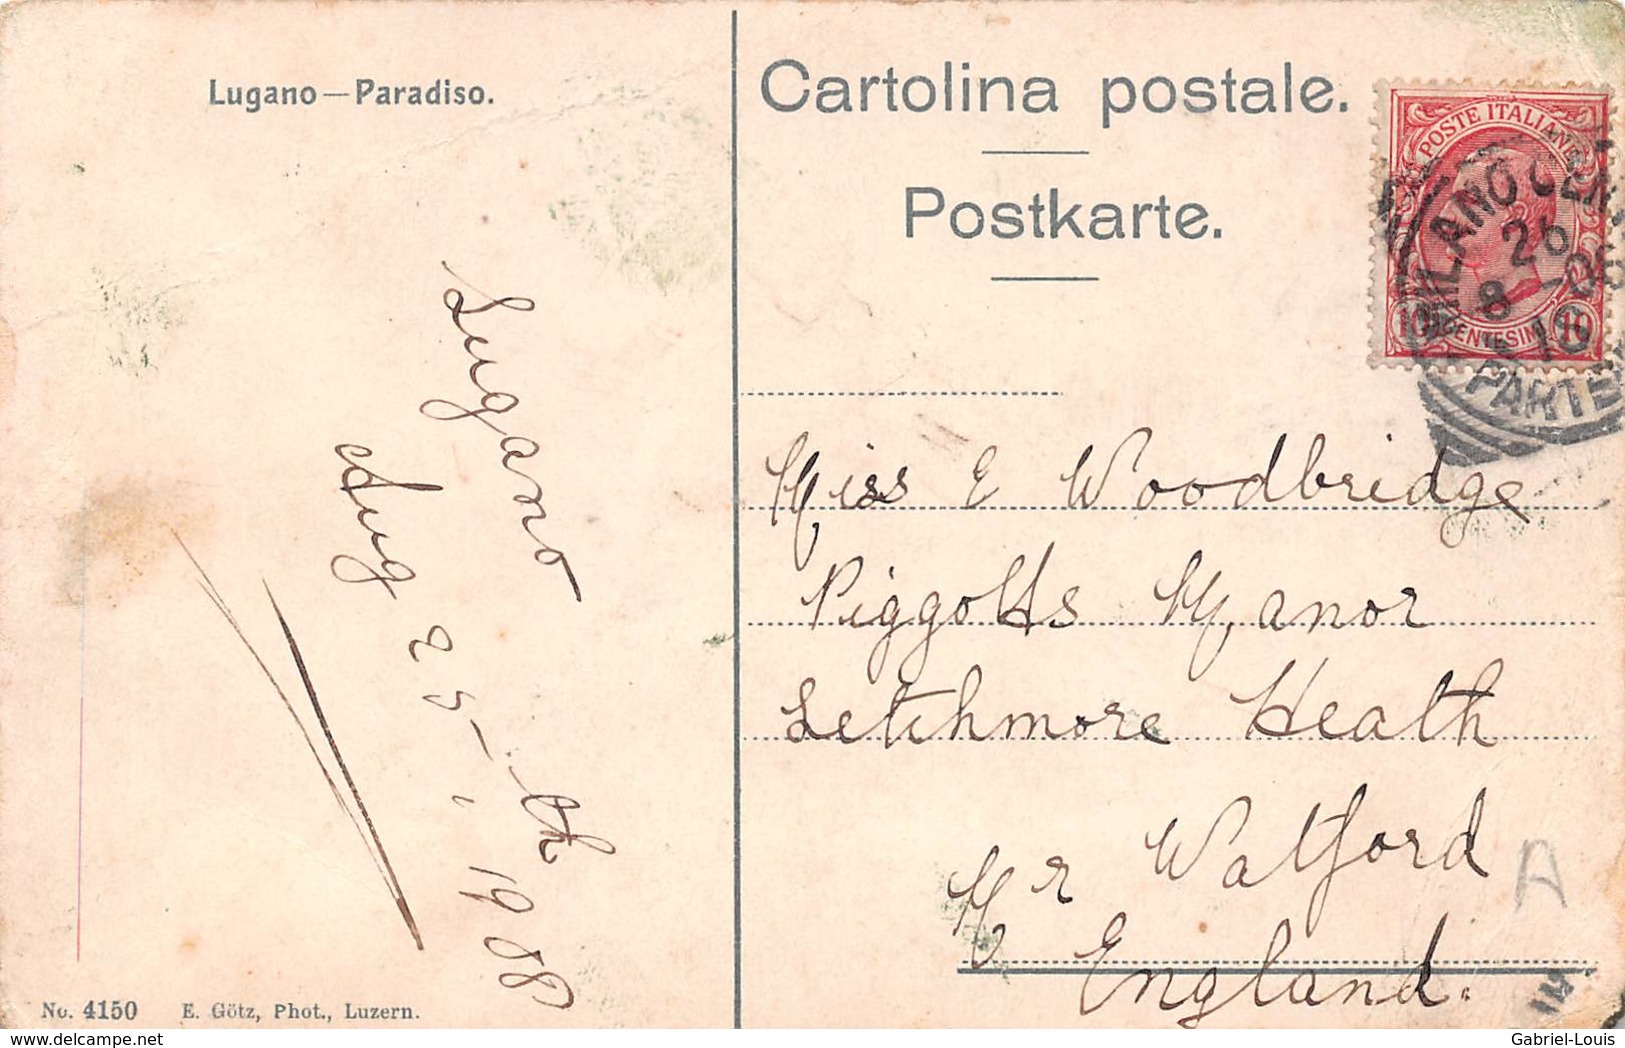 Lugano—Paradiso.
Cartolina postale.
Postkarte.
POSTE ITALIANE
10 CENTESIMI 10
MILANO CENT
26
8 - 08
18
PARTE
Lugano
Aug 25th
1908
Miss E Woodbridge
Piggotts Manor
Letchmore Heath
Nr Watford
England.
A
No. 4150 E. Götz, Phot., Luzern.
delcampe.net
Gabriel-Louis